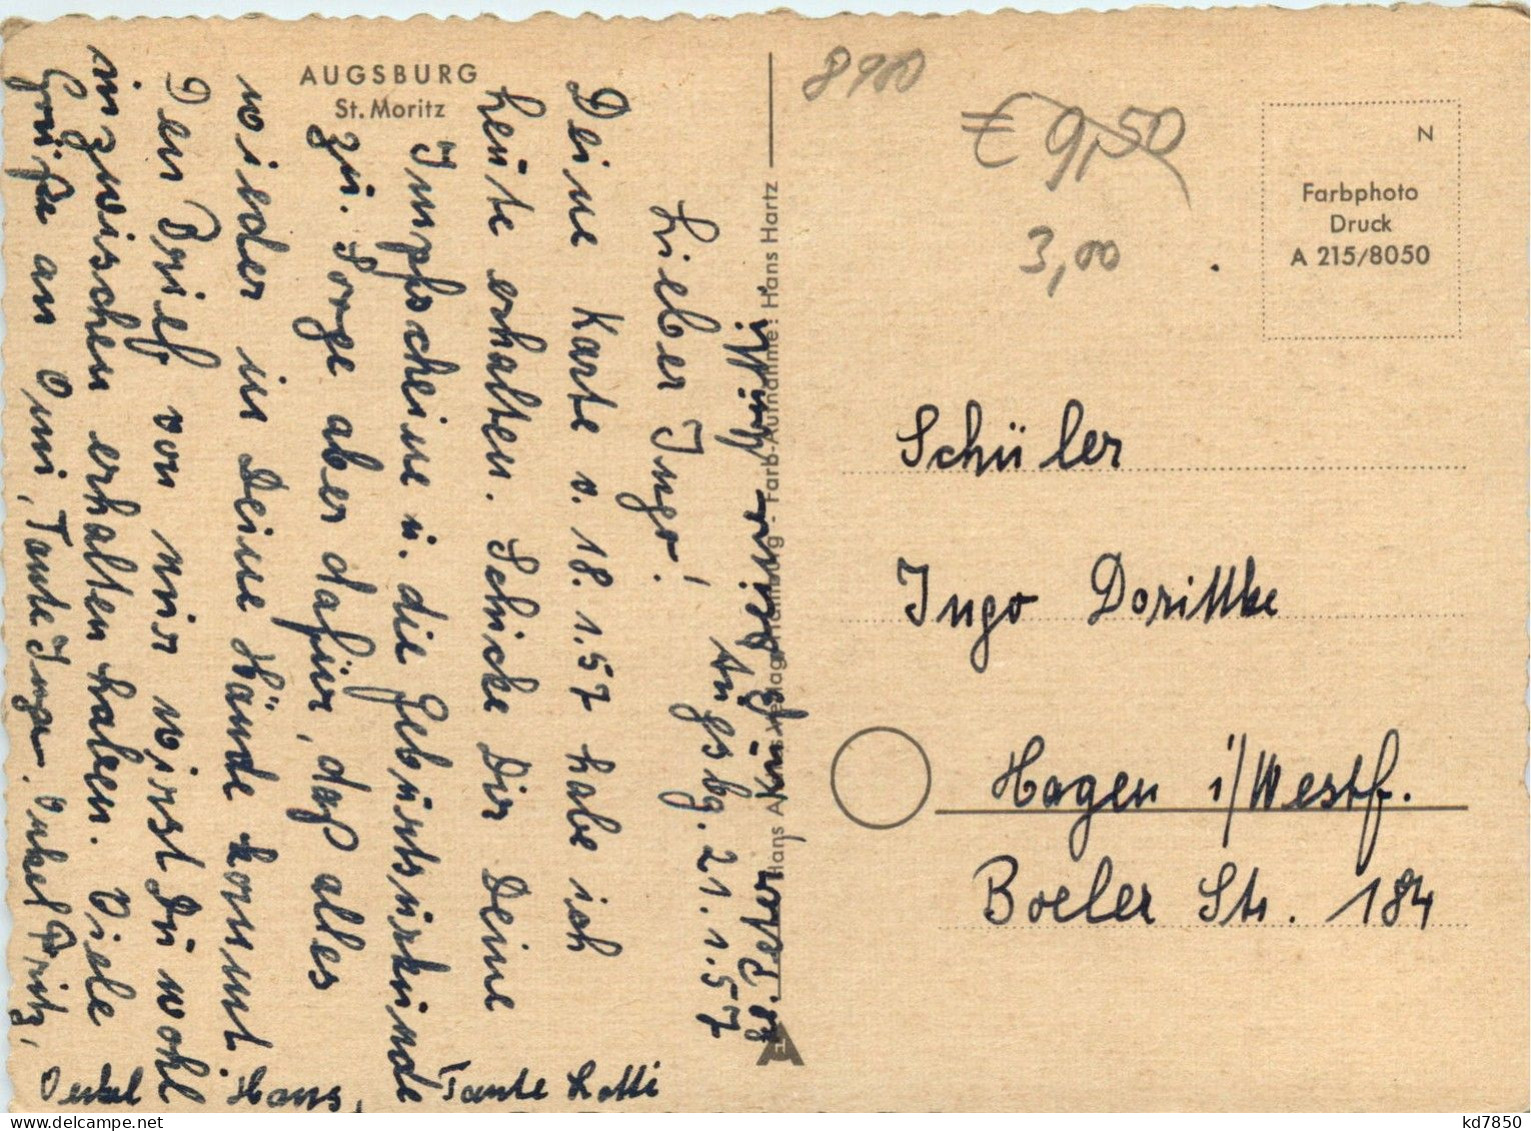 AUGSBURG
St. Moritz
Augsbg. 21.1.57
Lieber Ingo!
Deine Karte v. 18.1.57 habe ich
heute erhalten. Schicke Dir Deine
Impfscheine u. die Geburtsurkunde
zu. Sorge aber dafür, daß alles
wieder in Deine Hände kommt.
Den Brief von mir wirst Du wohl
inzwischen erhalten haben. Viele
Grüße an Omi, Tante Inge. Onkel Fritz,
Onkel Hans, Tante Lotti
kl. Peter Kuß Deine Mutti.
Farb-Aufnahme: Hans Hartz
8900
€ 9,50
3,00
N
Farbphoto
Druck
A 215/8050
Schüler
Ingo Dorittke
Hagen i/Westf.
Boeler Str. 184
kd7850